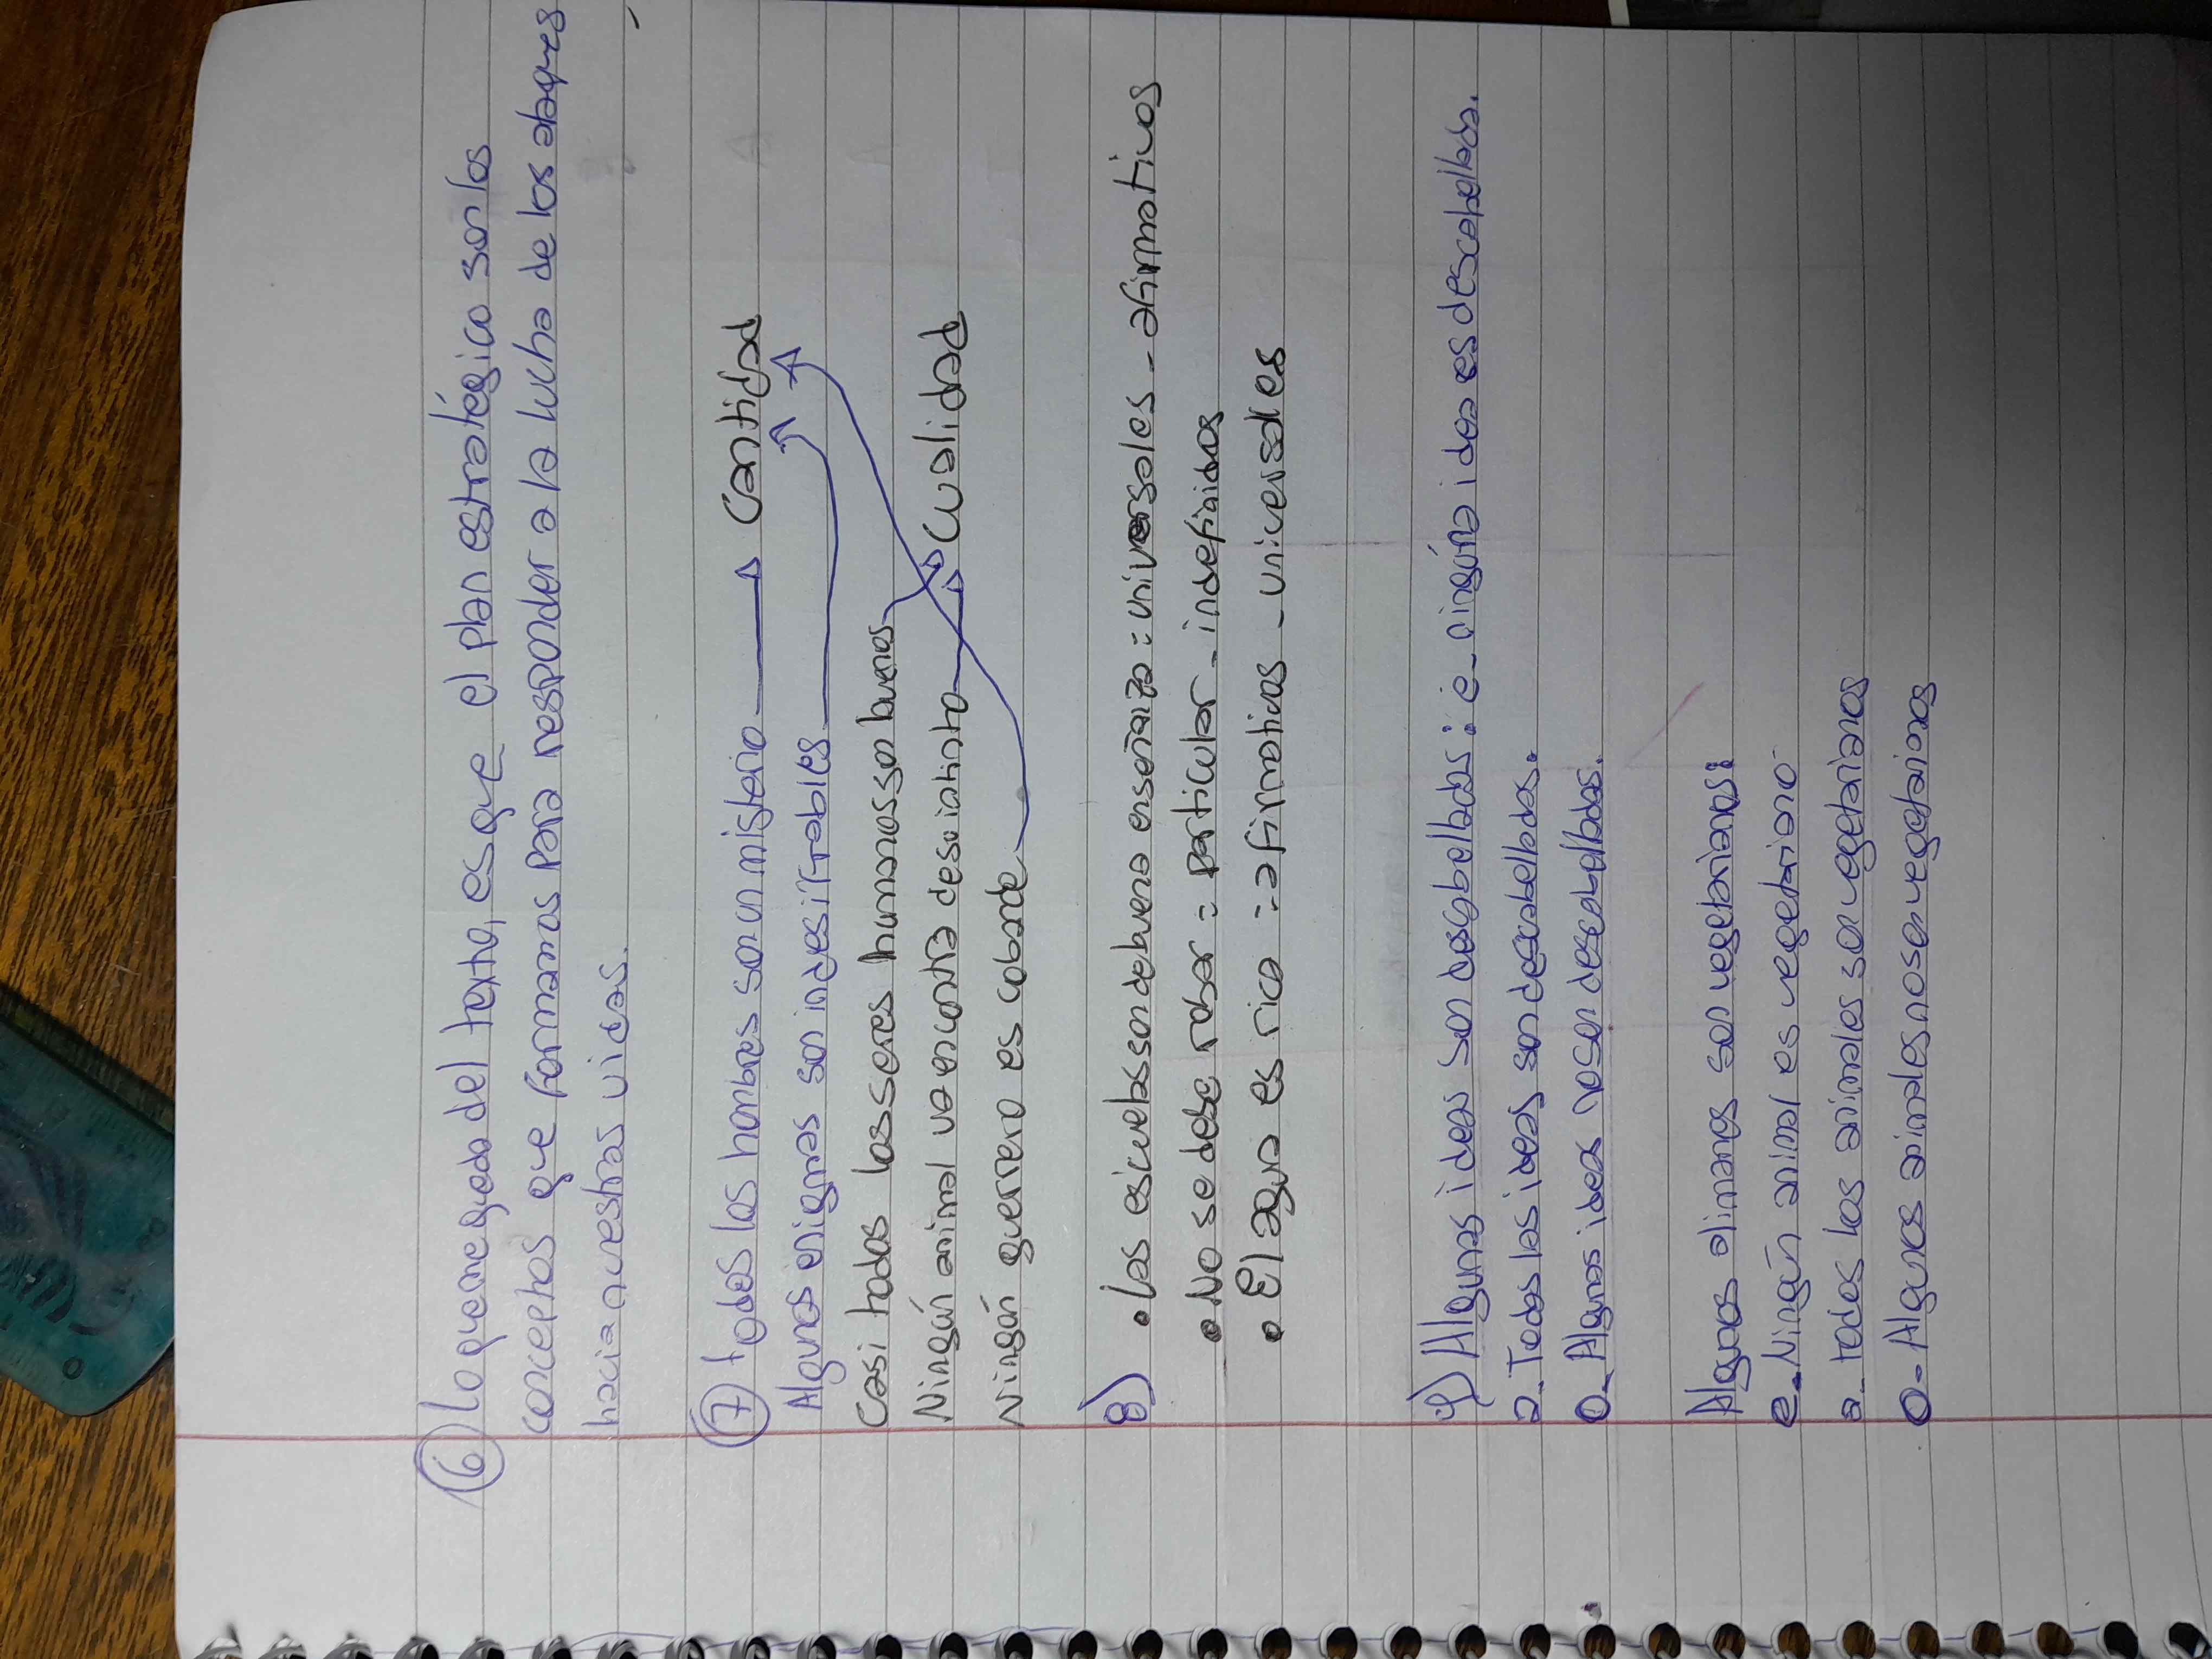 6) Lo que me quedo del texto, es que el plan estratégico son los
conceptos que formamos para responder a la lucha de los ataques
hacia nuestras vidas.
7) todos los hombres son un misterio → Cantidad
Algunos enigmas son indesifrables
Casi todos los seres humanos so buenos
Ningún animal va encontra desu intinto → Cualidad
Ningún guerrero es cobarde
8) • Las escuelas son de buena enseñaza: universales - afirmativos
• No se debe robar : particular - indefinidos
• El agua es rica : afirmativas - universales
9) Algunas ideas son descabelladas : e- ningúna idea es descabellada.
a- Todas las ideas son descabelladas.
O- Algunas ideas no son descabelladas.
Algunos alimanes son vegetarianos:
e- Ningún animal es vegetariano
a- todos los animales son vegetarianos
O- Algunos animales no son vegetarianos